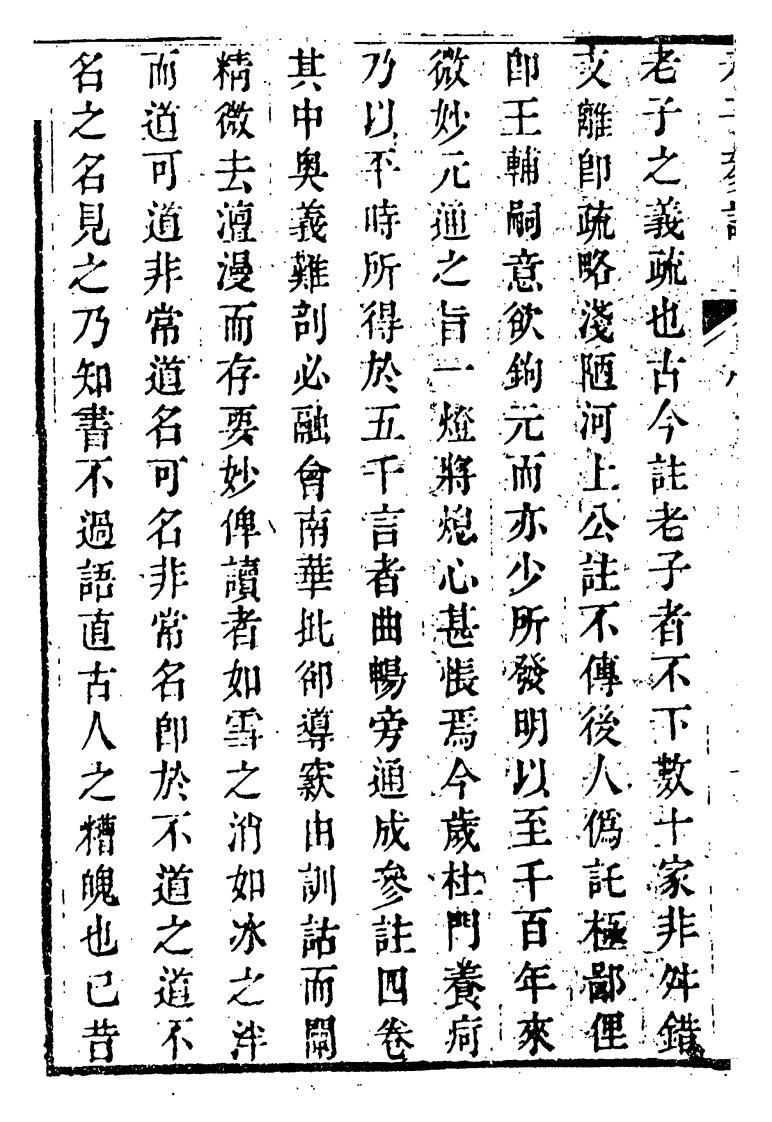 老子之義疏也古今註老子者不下數十家非舛錯
支離卽疏略淺陋河上公註不傳後人僞託極鄙俚
卽王輔嗣意欲鉤元而亦少所發明以至千百年來
微妙元通之旨一燈將熄心甚悵焉今歲杜門養疴
乃以平時所得於五千言者曲暢旁通成參註四卷
其中奧義難剖必融會南華批郤導窾由訓詁而闡
精微去澶漫而存要妙俾讀者如雪之消如冰之泮
而道可道非常道名可名非常名卽於不道之道不
名之名見之乃知書不過語直古人之糟魄也已昔